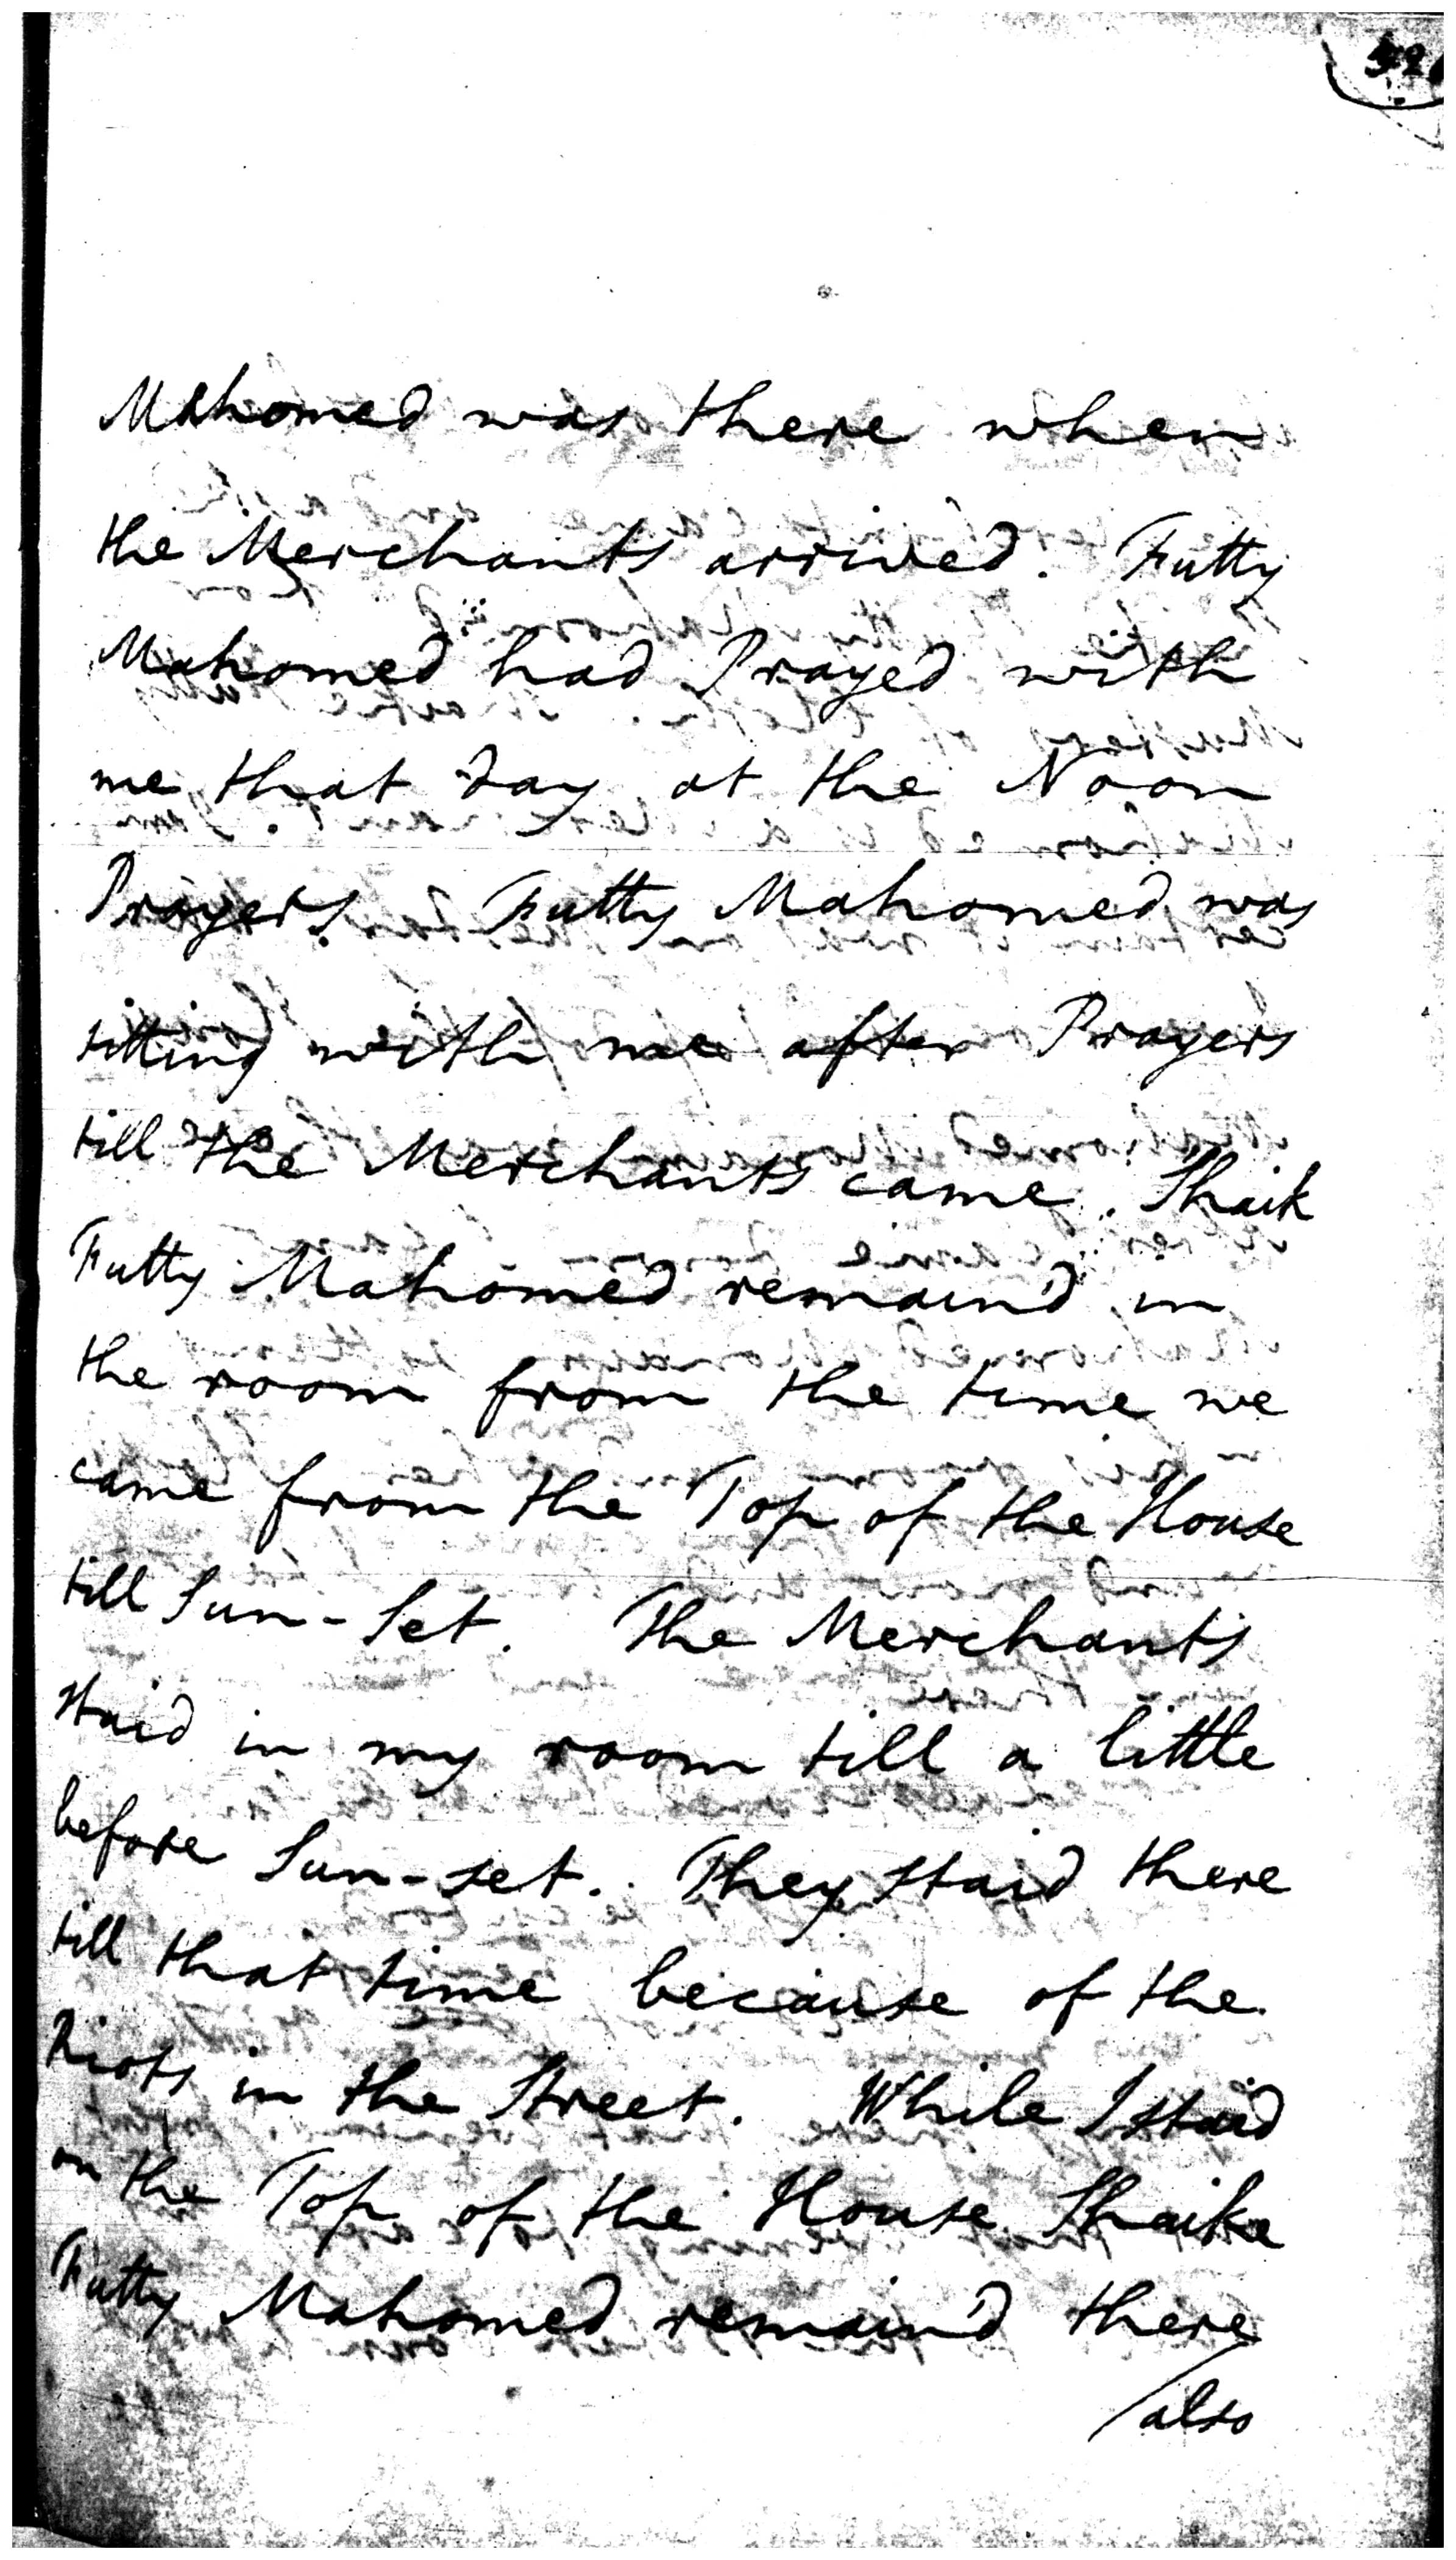 Mahomed was there when
the Merchants arrived. Futty
Mahomed had Prayed with
me that day at the Noon
Prayers. Futty Mahomed was
sitting with me after Prayers
till the Merchants came. Shaik
Futty Mahomed remain'd in
the room from the time we
came from the Top of the House
till Sun-Set. The Merchants
staid in my room till a little
before Sun-set. They staid there
till that time because of the
Riots in the Street. While I staid
on the Top of the House Shaike
Futty Mahomed remain'd there
also